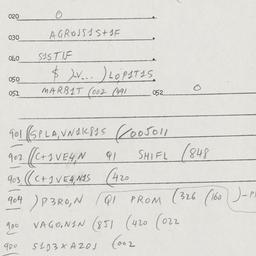 020 0
030 AGROJS1S+1F
040 S1STIF
050 $ )V... ) LOP1T1S
051 MARB1T (002 (A91 052 0
901 ((SPLA,VN1K81S (/005011
902 ((C+1VE4,N Q1 SHIFL (848
903 ((C+1VE4,N1S (420
904 )P3RO,N (Q1 PROM (326 (160 )-P1
900 VAGO,N1N (851 (420 (022
900 S193XA20J (002